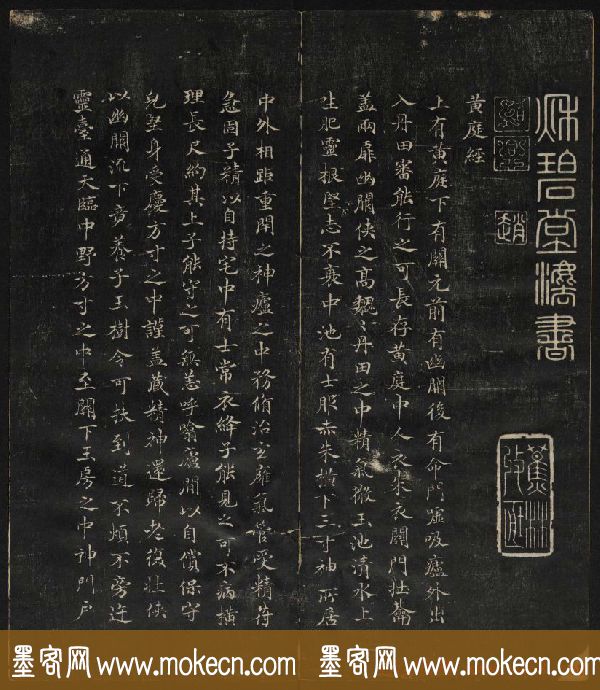 秋碧堂法書
趙
黃庭經
上有黃庭下有關元前有幽闕後有命門噓吸廬外出
入丹田審能行之可長存黃庭中人衣朱衣關門壯籥
蓋兩扉幽闕俠之高巍〻丹田之中精氣微玉池清水上
生肥靈根堅志不衰中池有士服赤朱橫下三寸神所居
中外相距重閉之神廬之中務脩治玄廱氣管受精符
急固子精以自持宅中有士常衣絳子能見之可不病橫
理長尺約其上子能守之可無恙呼噏廬間以自償保守
皃堅身受慶方寸之中謹蓋藏精神還歸老復壯俠
以幽闕流下竟養子玉樹令可扶至道不煩不旁迕
靈臺通天臨中野方寸之中至關下玉房之中神門戶
墨客网 www.mokecn.com 墨客网 www.mokecn.com